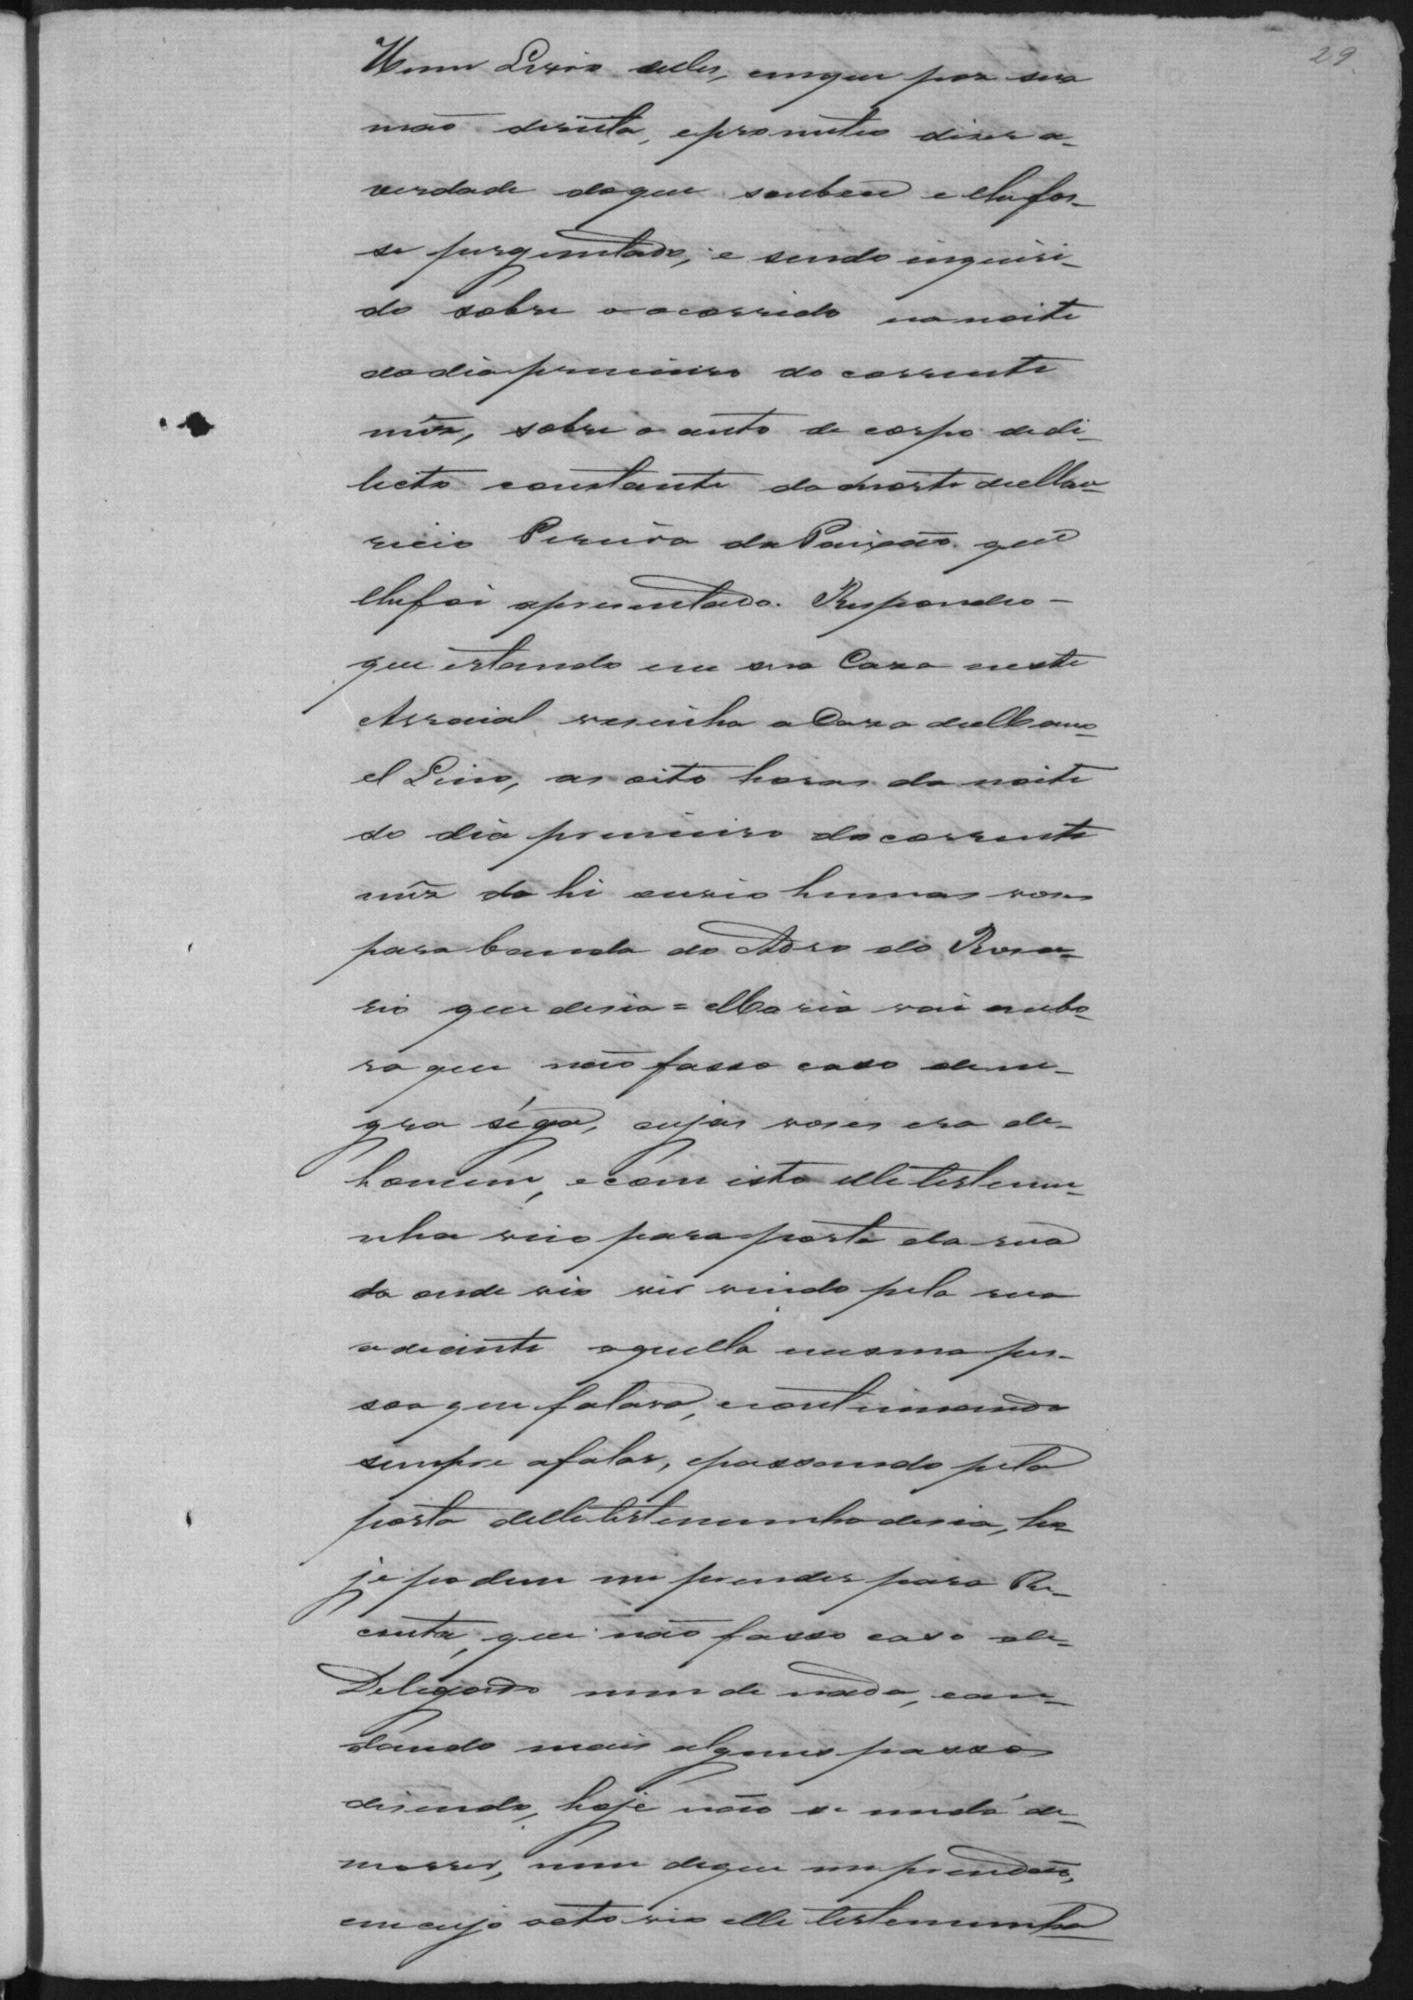 29
Hum Livro delles, emque poz sua
mão dirêita, eprometeo dizer a-
verdade doque soubece e lhefos-
se perguntado, e sendo inquiri-
do sobre o ocorrido na noite
do dia primeiro do corrente
mês, sobre o auto de corpo de di-
licto constante da morte de Mau-
ricio Pereira da Paixão que
lhefoi apresentado. Respondeo-
que estando em sua Caza neste
Arraial vesinha a Caza de Mano-
el Lino, as oito horas da noite
do dia primeiro do corrente
mês da hi ouvio humas vozes
para banda do Adro do Rosa-
rio que desia = Maria vai embo-
ra que não fasso caso de ne-
gra séga, cujas vozes era de-
homem, e com isto elle testemu-
nha veio para porta da rua
da onde vio vir vindo pela rua
adeiante aquella mesma pes-
soa que falava, econtinuando
sempre afalar, epassando pela
porta delle testemunha desia, ho-
je podem me prender para Re-
cruta, que não fasso caso de-
Delegado nem de nada, can-
tando mais alguns passos
disendo, hoje não se me dá de-
morrer, nem deque me prendão,
em cujo acto vio elle testemunha